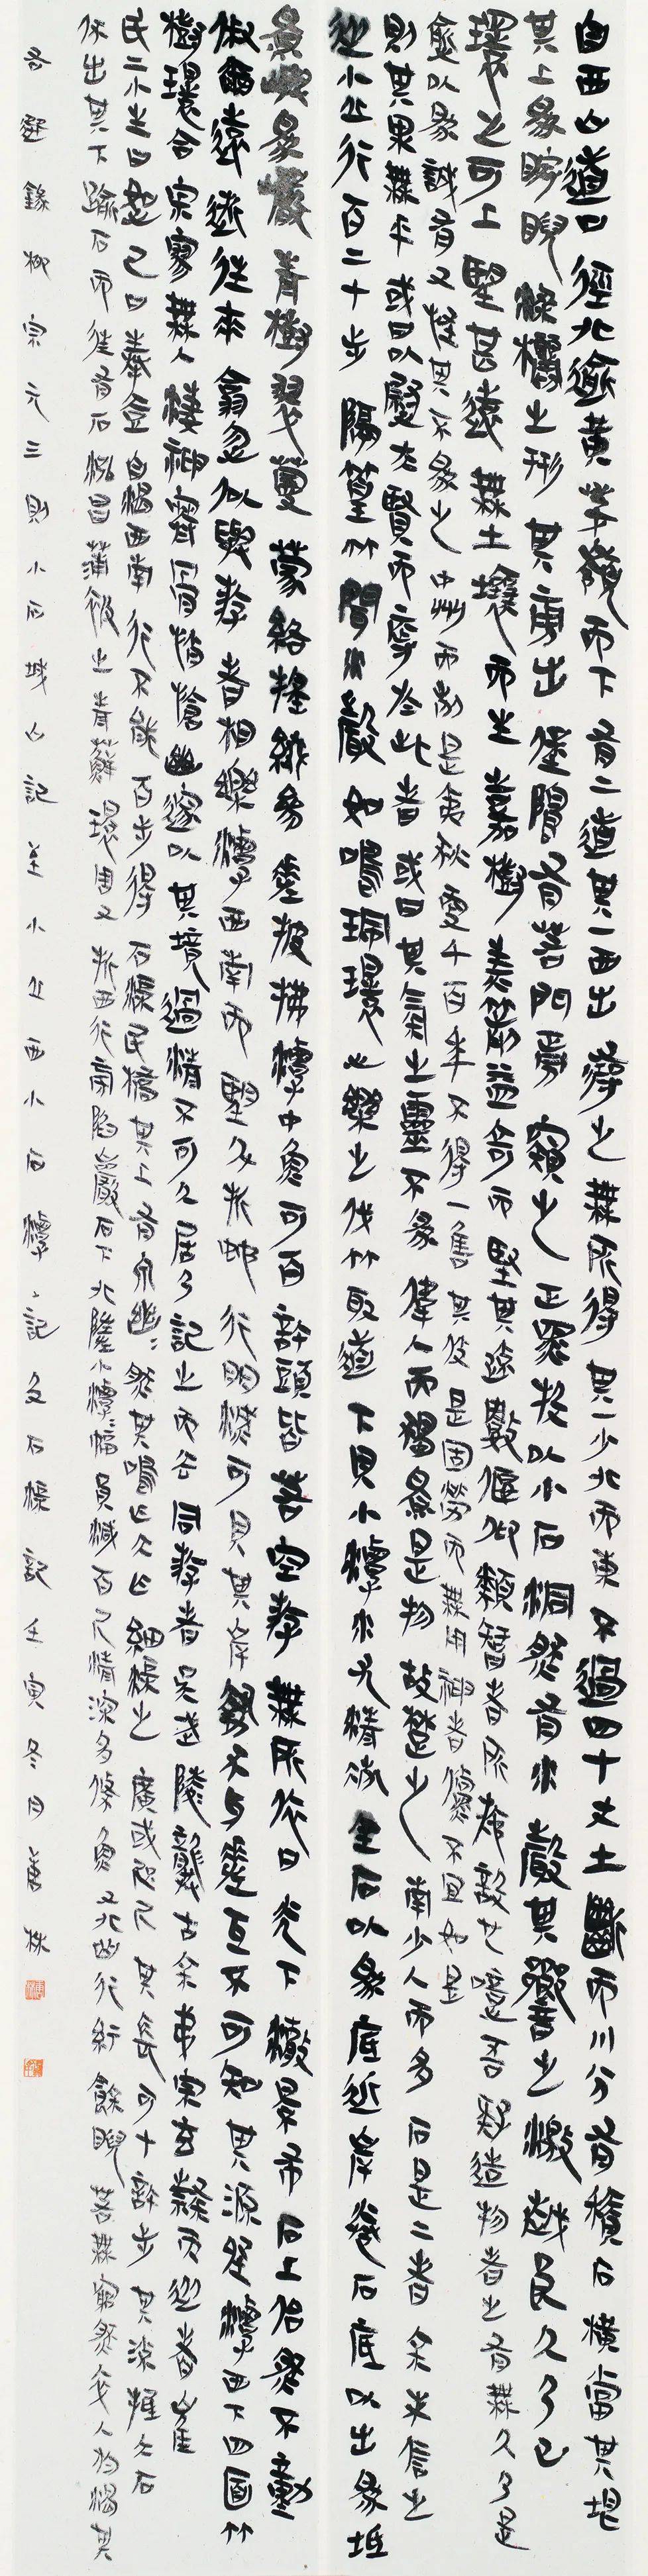 自西山道口徑北逾黃茅嶺而下有二道其一西出尋之無所得其一少北而東不過四十丈土斷而川分有積石橫當其垠
其上為睥睨梁欐之形其旁出堡塢有若門焉窺之正黑投以小石洞然有水聲其響之激越良久乃已
環之可上望甚遠無土壤而生嘉樹美箭益奇而堅其疏數偃仰類智者所施設也噫吾疑造物者之有無久乃是
愈以為誠有又怪其不為之中州而列是夷狄更千百年不得一售其伎是固勞而無用神者儻不宜如是
則其果無乎或曰以慰夫賢而辱於此者或曰其氣之靈不為偉人而獨為是物故楚之南少人而多石是二者余未信之
從小丘行百二十步隔篁竹聞水聲如鳴珮環心樂之伐竹取道下見小潭水尤清冽全石以為底近岸卷石底以出為坻
為嶼為巖青樹翠蔓蒙絡搖綴參差披拂潭中魚可百許頭皆若空游無所依日光下澈影布石上佁然不動
俶爾遠逝往來翕忽似與游者相樂潭西南而望斗折蛇行明滅可見其岸勢犬牙差互不可知其源坐潭西下四面竹
樹環合寂寥無人悽神寒骨悄愴幽邃以其境過清不可久居乃記之而去同游者吳武陵龔古余弟宗玄隸而從者崔
氏二小生曰恕己曰奉壹自渴西南行不能百步得石渠民橋其上有泉幽幽然其鳴乍大乍細渠之廣或咫尺其長可十許步其流抵大石
伏出其下踰石而往有石泓昌蒲被之青蘚環周又折西行旁陷巖石下北墮小潭潭幅員減百尺清深多鯈魚又北曲行紆餘睨若無窮然卒入於渴其
吾選錄柳宗元三則小石城山記至小丘西小石潭潭記及石渠記壬寅冬月